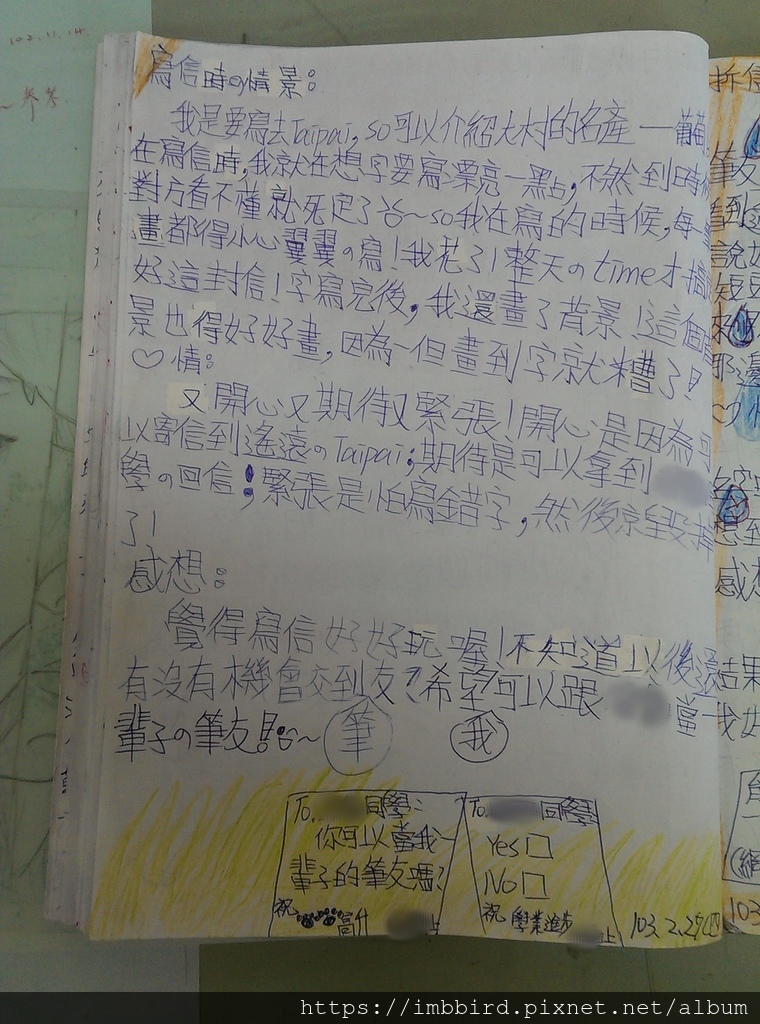 103.11.14.
寫信時の情景：
我是要寫去Taipai, so可以介紹大村的名產 — 葡萄
在寫信時，我就在想字要寫漂亮一點，不然到時候
對方看不懂就死定了台～so我在寫的時候，每一筆
畫都得小心翼翼の寫！我花了1整天のtime才搞
好這封信！字寫完後，我還畫了背景！這個背
景也得好好畫，因為一但畫到字就糟了！
♡情：
又開心又期待又緊張！開心是因為可
以寄信到遙遠のTaipai；期待是可以拿到
學の回信；緊張是怕寫錯字，然後就毀掉
了！
感想：
覺得寫信好好玩喔！不知道以後還
有沒有機會交到友？希望可以跟 當一
輩子の筆友！～ 筆 我
To. 同學：
你可以當我一
輩子的筆友嗎？
祝
高升 上
To. 同學
Yes□
No□
祝 學業進步
上
103.2.27(四)
拆信
筆友
說
短
那邊
想到
感想
結果
我好
103
https://imbbird.pixnet.net/album